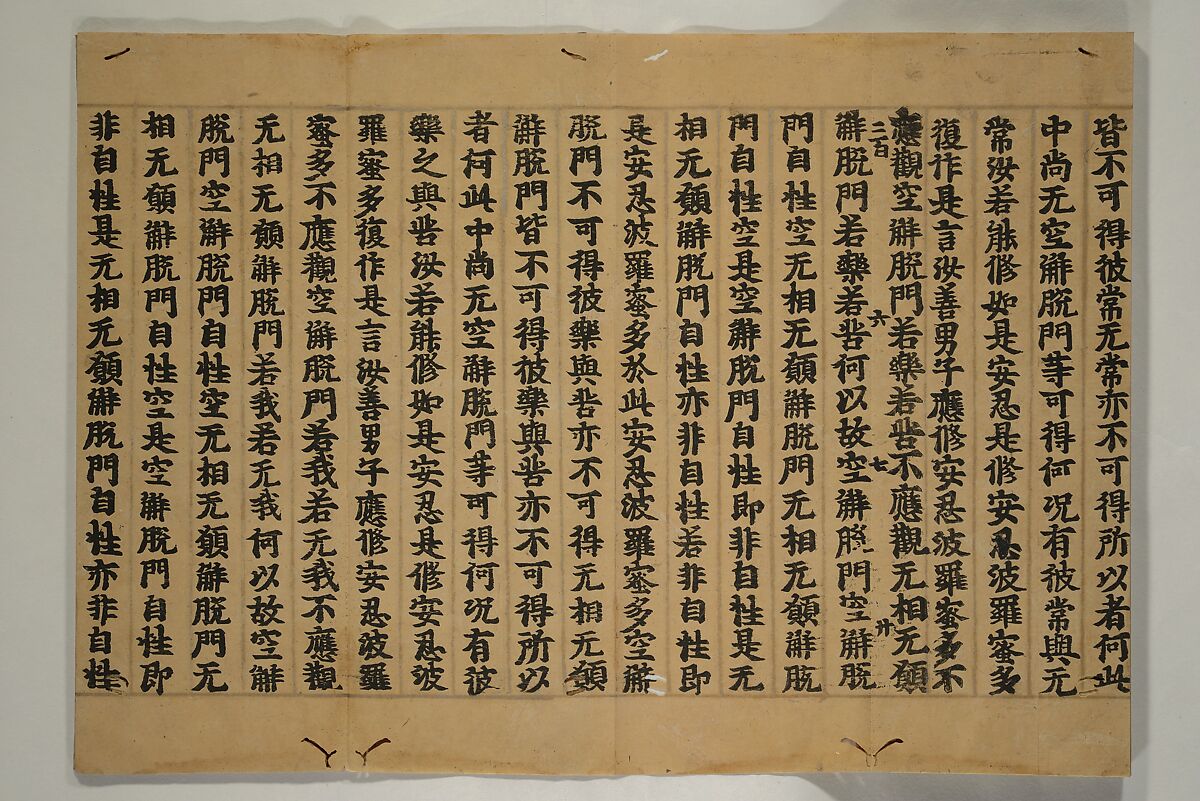 皆不可得彼常无常亦不可得所以者何此
中尚无空解脱門等可得何况有彼常與无
常汝若能修如是安忍是修安忍波羅蜜多
復作是言汝善男子應修安忍波羅蜜多不
應觀空解脱門若樂若苦不應觀无相无願
二百 六 七 廿
解脱門若樂若苦何以故空解脱門空解脱
門自性空无相无願解脱門无相无願解脱
門自性空是空解脱門自性即非自性是无
相无願解脱門自性亦非自性若非自性即
是安忍波羅蜜多於此安忍波羅蜜多空解
脱門不可得彼樂與苦亦不可得无相无願
解脱門皆不可得彼樂與苦亦不可得所以
者何此中尚无空解脱門等可得何况有彼
樂之與苦汝若能修如是安忍是修安忍波
羅蜜多復作是言汝善男子應修安忍波羅
蜜多不應觀空解脱門若我若无我不應觀
无相无願解脱門若我若无我何以故空解
脱門空解脱門自性空无相无願解脱門无
相无願解脱門自性空是空解脱門自性即
非自性是无相无願解脱門自性亦非自性